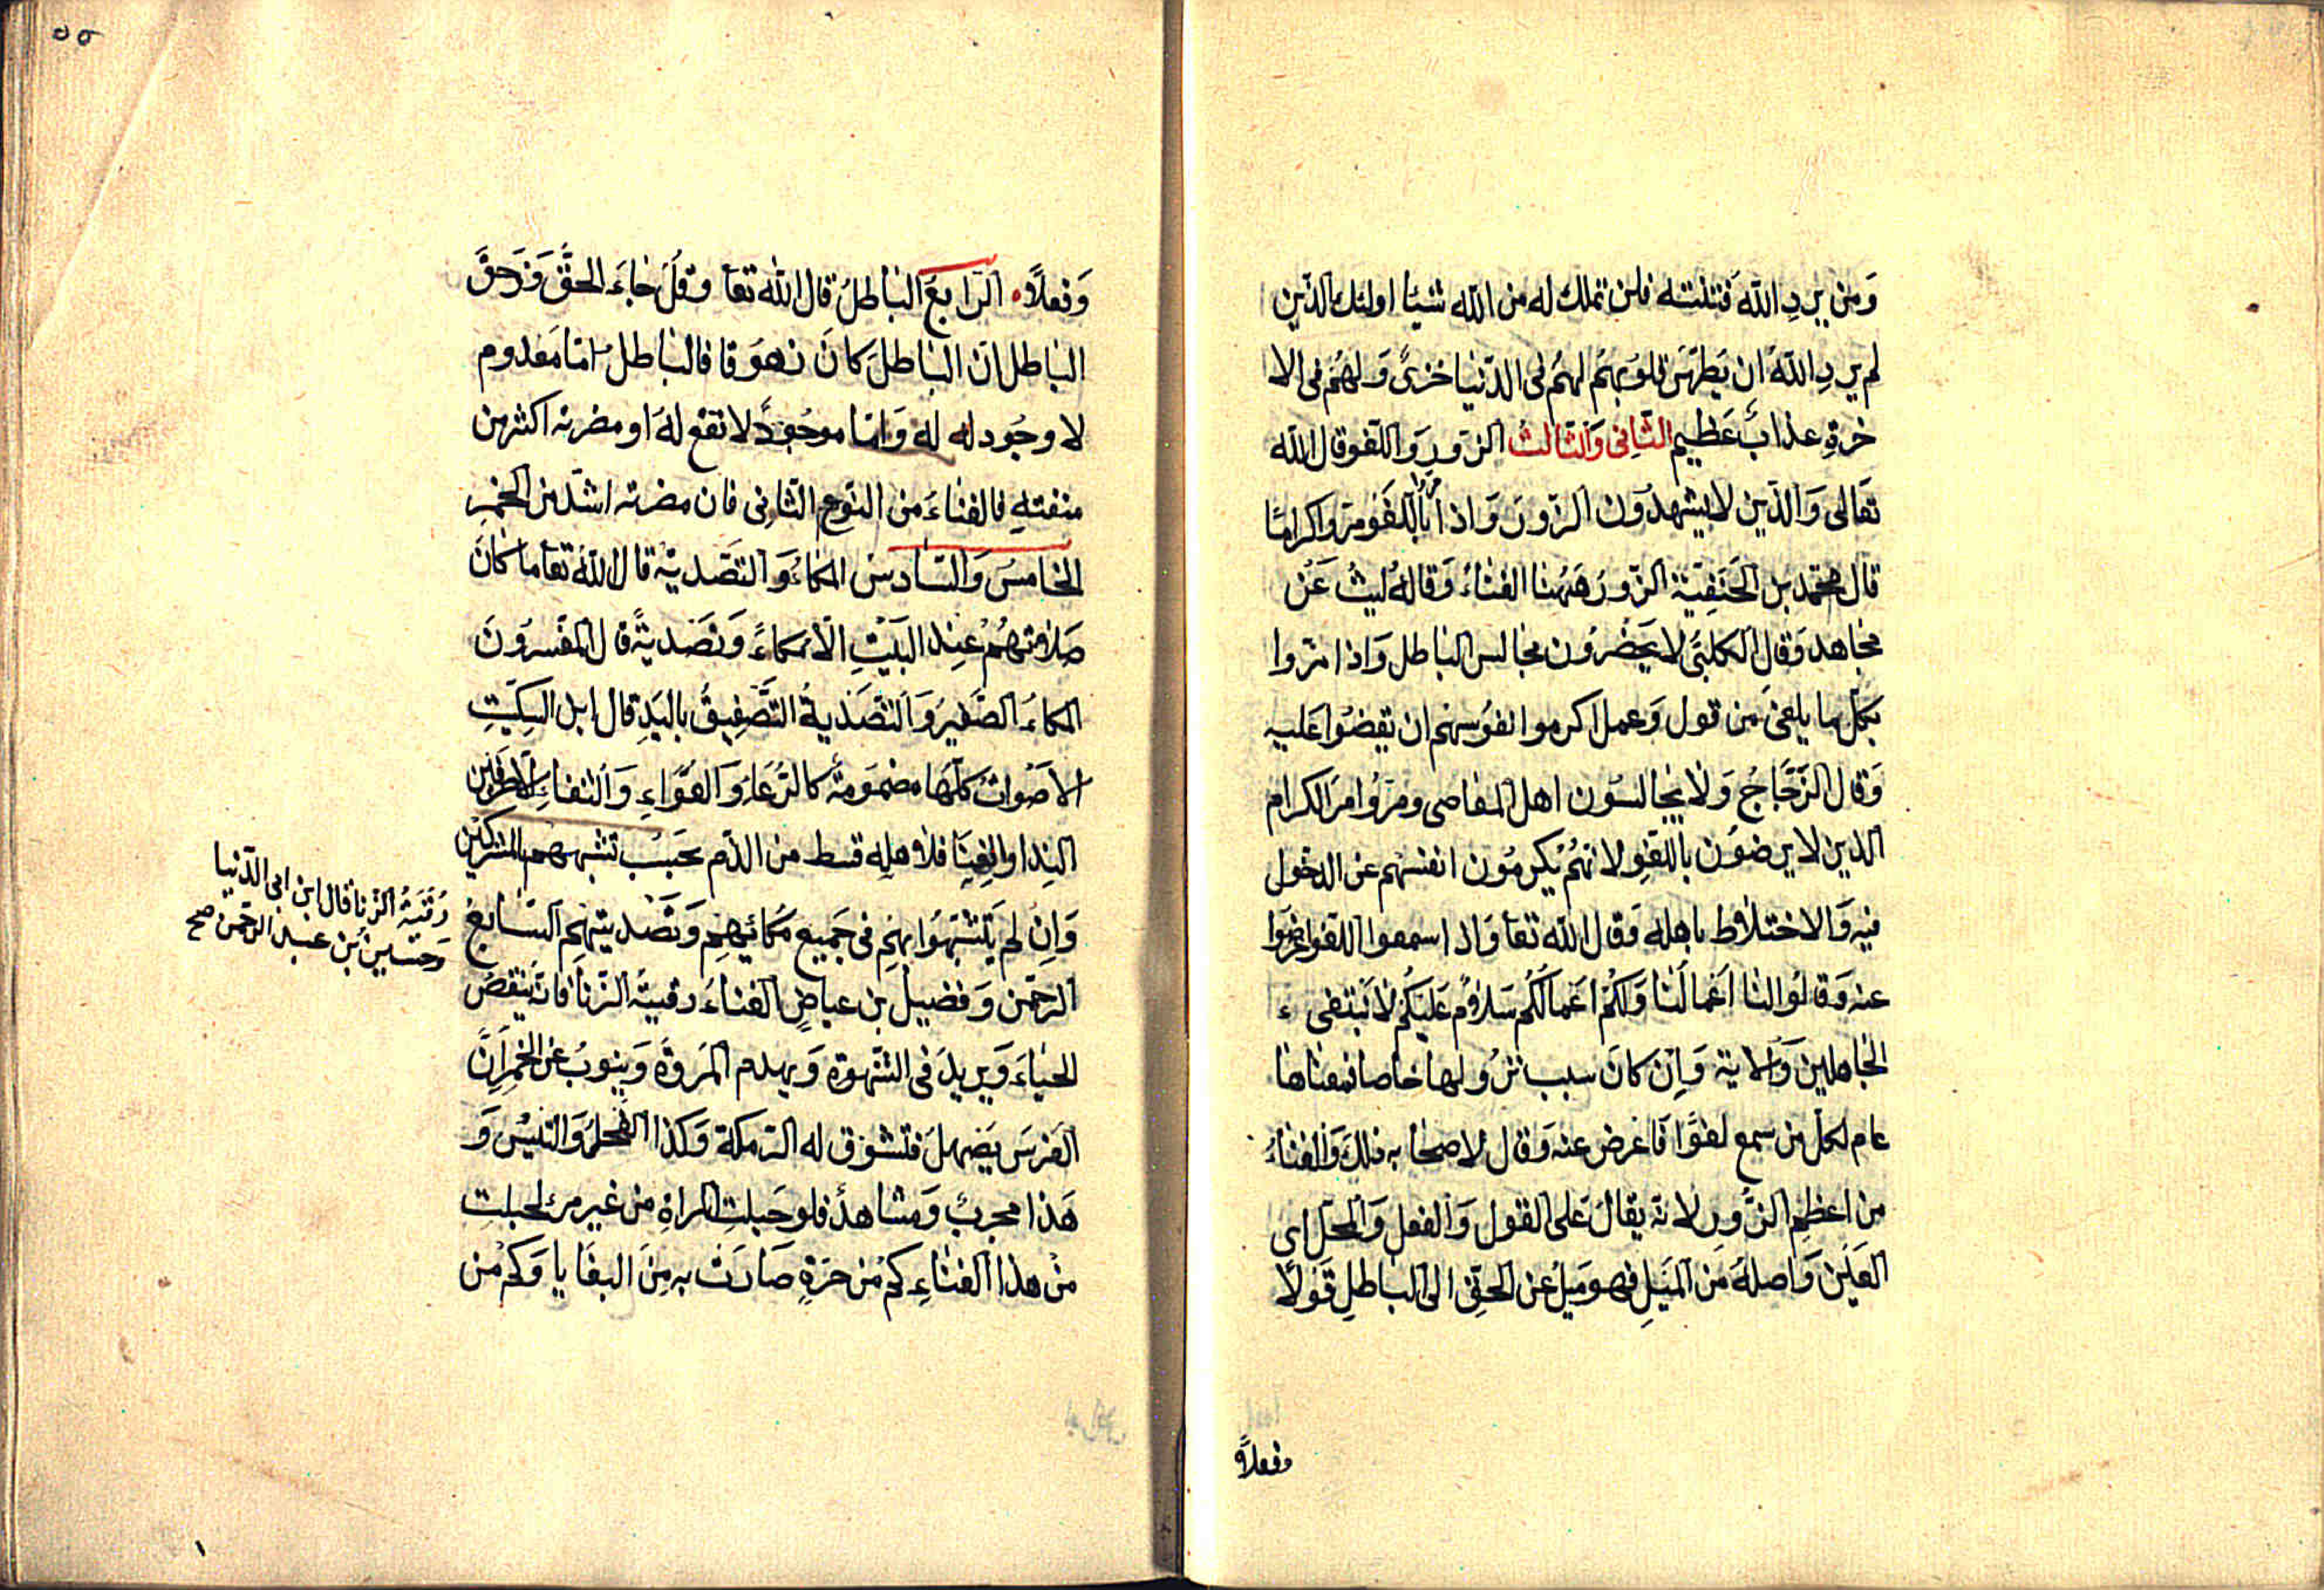 وَمن يردِ اللّٰه فتنته فلن تملك له من اللّٰه شيئا اولئك الذين
لم يردِ اللّٰهُ ان يَطهّرَ قلوُبهمُ لهمُ فى الدّنيا خزىٌ وَلهُم فى الا
خرةِ عذابٌ عَظيم الثانى وَالثالث الزّورِ وَ اللغو قال اللّٰه
تعَالى وَالذّين لا يشهدُون الزورَ وَ اذا مروا باللّغو مروا كرامًا
قال محمّد بن الحَنفيّة الزّورُ هٰهُنا الغناءُ وَقالهُ ليثُ عَنْ
مجاهد وَقال الكلبّى لا يَحضُرُون مجالس الباطل وَاذا مرّوا
بكلّ ما يلغىٰ مِن قول وَعمل اكرموا نفوُسهم ان يَقضُوا عَليه
وَقال الزّجّاجُ وَلا يجالسُون اهل المعاصى ومرّوا مرّ الكرام
الذين لا يرضوُن باللغوِ لانهُمْ يكرمُون انفسهم عن الدخول
فيه وَالاختلاط باهله وَقال اللّٰه تعا وَاذا سمعوا اللغو اعرضوا
عنه وَقالوُا لنا اَعمالنا وَلكمْ اعَمالكُم سَلامٌ عَليكمْ لا نبتغى
الجاهلين وَالاية وَاِن كانَ سبب نزُولها خاصا فمعناها
عام لكل من سمع لغوًا فاعرض عنه وَقال لاصحابه ذلكَ وَالغناءُ
من اعظمِ الزّورِ لانه يقالُ عَلى القول وَالفعل وَالمحلّ اى
العَين وَاصلهُ مَن المَيلِ فهو مَيلُ عن الحقِ الى الباطلِ قَولًا
وفعلاً
٥٥
وَفعلاً الرّابعَ الباطلُ قال اللّٰه تعا وقلْ جاءَ الحقّ وَزهقَ
الباطل انّ الباطلَ كانَ زهوَقا فالباطل امّا معَدوم
لا وجُود له له وَامّا موجُودٌ لا نفع لهُ او مضرته اكثر من
منفعتهِ فالغناءَ من النّوع الثانِى فان مضرته اشدّ من الخمرِ
الخامسُ وَالسّادس المكاءُ وَ التصَديَة قال اللّٰه تعا ما كانَ
صَلاتهُمْ عِند البَيْتِ الّا مُكاءً وَ تصَديةً قال المفسّرُونَ
المكاءُ الصّفيرُ وَ التصَديةُ التَّصَفيقُ باليَدِ قال ابن السِّكيّتِ
الاصَواتُ كلّها مضمُومَةٌ كالرّعَاءِ وَ العُوّاءِ وَ الثغاءِ الاحرفين
النِدا والغِنا فلاهلِهِ قسط من الذّم بحَسب تشبههم بالمشركين
وَاِن لم يَتشَبهّوا بهِم فى جَميعِ مُكائهِم وَ تصَديتهم السّابعُ
رُقيَةُ الزّنا قال ابن ابى الدّنيا
وَحسين بن عبد الرحمن صح
الرحمن وَ فضيل بن عياضٍ الغناءَ رقيَةُ الزّنا فانّه ينقصُ
الحَياءَ وَيزيدَ فى الشهوة وَ يهدم المَروةَ وَينوبُ عن الخمرانّ
الفَرسَ يَصهلُ فتشوَق له الرّمكة وَكذا الفحلُ وَالتيسُ وَ
هَذا مجربٌ وَمشاهدٌ فلو حَبلت المراةِ من غير مرء لحبلت
مْن هذا الغناءِ كم مِن حرّةٍ صَارَت به مِنَ البغَايا وَكم من
١